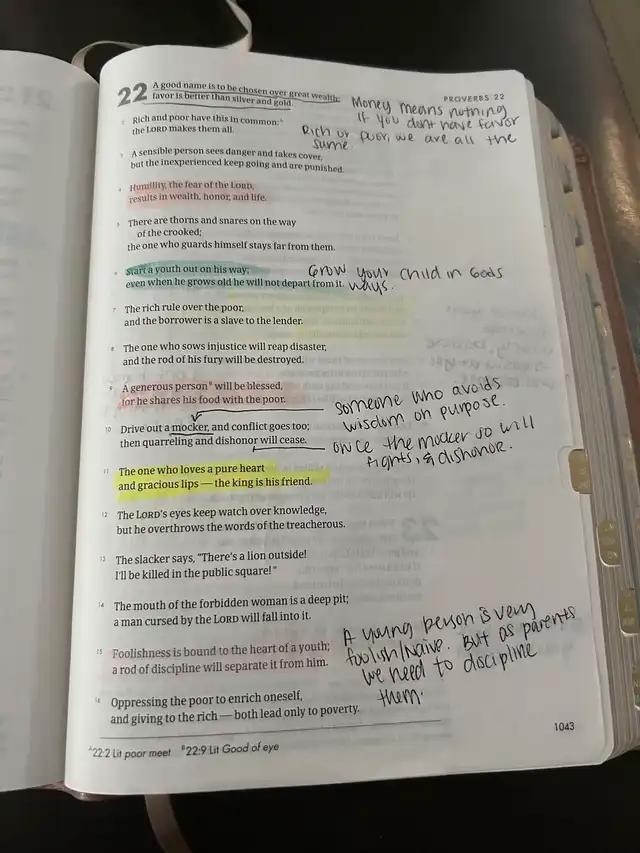 22 A good name is to be chosen over great wealth;
favor is better than silver and gold.
PROVERBS 22
Money means nothing
if you dont have favor
2 Rich and poor have this in common:ᴬ
the LORD makes them all.
Rich or poor, we are all the
same
3 A sensible person sees danger and takes cover,
but the inexperienced keep going and are punished.
4 Humility, the fear of the LORD,
results in wealth, honor, and life.
5 There are thorns and snares on the way
of the crooked;
the one who guards himself stays far from them.
6 Start a youth out on his way;
even when he grows old he will not depart from it.
Grow your child in Gods
ways.
7 The rich rule over the poor,
and the borrower is a slave to the lender.
8 The one who sows injustice will reap disaster,
and the rod of his fury will be destroyed.
9 A generous personᴮ will be blessed,
for he shares his food with the poor.
someone who avoids
wisdom on purpose.
10 Drive out a mocker, and conflict goes too;
then quarreling and dishonor will cease.
once the mocker so will
fights, & dishonor.
11 The one who loves a pure heart
and gracious lips — the king is his friend.
12 The LORD's eyes keep watch over knowledge,
but he overthrows the words of the treacherous.
13 The slacker says, "There's a lion outside!
I'll be killed in the public square!"
14 The mouth of the forbidden woman is a deep pit;
a man cursed by the LORD will fall into it.
15 Foolishness is bound to the heart of a youth;
a rod of discipline will separate it from him.
A young person is very
foolish/naive. But as parents
we need to discipline
them.
16 Oppressing the poor to enrich oneself,
and giving to the rich — both lead only to poverty.
1043
ᴬ22:2 Lit poor meet ᴮ22:9 Lit Good of eye